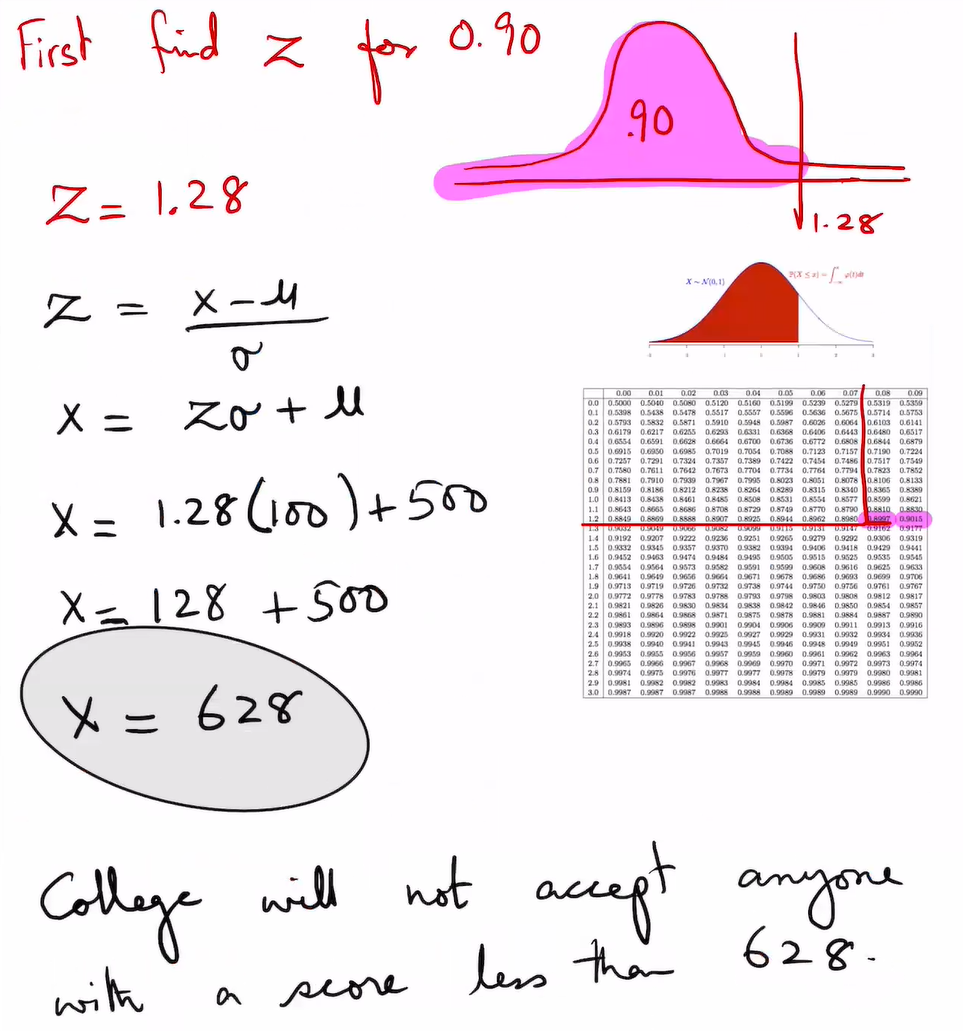 First find z for 0.90
.90
Z = 1.28
1.28
Z = x - μ
σ
X ~ N(0,1)
x = zσ + μ
0.00 0.01 0.02 0.03 0.04 0.05 0.06 0.07 0.08 0.09
0.0 0.5000 0.5040 0.5080 0.5120 0.5160 0.5199 0.5239 0.5279 0.5319 0.5359
0.1 0.5398 0.5438 0.5478 0.5517 0.5557 0.5596 0.5636 0.5675 0.5714 0.5753
0.2 0.5793 0.5832 0.5871 0.5910 0.5948 0.5987 0.6026 0.6064 0.6103 0.6141
0.3 0.6179 0.6217 0.6255 0.6293 0.6331 0.6368 0.6406 0.6443 0.6480 0.6517
0.4 0.6554 0.6591 0.6628 0.6664 0.6700 0.6736 0.6772 0.6808 0.6844 0.6879
0.5 0.6915 0.6950 0.6985 0.7019 0.7054 0.7088 0.7123 0.7157 0.7190 0.7224
0.6 0.7257 0.7291 0.7324 0.7357 0.7389 0.7422 0.7454 0.7486 0.7517 0.7549
0.7 0.7580 0.7611 0.7642 0.7673 0.7704 0.7734 0.7764 0.7794 0.7823 0.7852
0.8 0.7881 0.7910 0.7939 0.7967 0.7995 0.8023 0.8051 0.8078 0.8106 0.8133
0.9 0.8159 0.8186 0.8212 0.8238 0.8264 0.8289 0.8315 0.8340 0.8365 0.8389
1.0 0.8413 0.8438 0.8461 0.8485 0.8508 0.8531 0.8554 0.8577 0.8599 0.8621
1.1 0.8643 0.8665 0.8686 0.8708 0.8729 0.8749 0.8770 0.8790 0.8810 0.8830
1.2 0.8849 0.8869 0.8888 0.8907 0.8925 0.8944 0.8962 0.8980 0.8997 0.9015
1.3 0.9032 0.9049 0.9066 0.9082 0.9099 0.9115 0.9131 0.9147 0.9162 0.9177
1.4 0.9192 0.9207 0.9222 0.9236 0.9251 0.9265 0.9279 0.9292 0.9306 0.9319
1.5 0.9332 0.9345 0.9357 0.9370 0.9382 0.9394 0.9406 0.9418 0.9429 0.9441
1.6 0.9452 0.9463 0.9474 0.9484 0.9495 0.9505 0.9515 0.9525 0.9535 0.9545
1.7 0.9554 0.9564 0.9573 0.9582 0.9591 0.9599 0.9608 0.9616 0.9625 0.9633
1.8 0.9641 0.9649 0.9656 0.9664 0.9671 0.9678 0.9686 0.9693 0.9699 0.9706
1.9 0.9713 0.9719 0.9726 0.9732 0.9738 0.9744 0.9750 0.9756 0.9761 0.9767
2.0 0.9772 0.9778 0.9783 0.9788 0.9793 0.9798 0.9803 0.9808 0.9812 0.9817
2.1 0.9821 0.9826 0.9830 0.9834 0.9838 0.9842 0.9846 0.9850 0.9854 0.9857
2.2 0.9861 0.9864 0.9868 0.9871 0.9875 0.9878 0.9881 0.9884 0.9887 0.9890
2.3 0.9893 0.9896 0.9898 0.9901 0.9904 0.9906 0.9909 0.9911 0.9913 0.9916
2.4 0.9918 0.9920 0.9922 0.9925 0.9927 0.9929 0.9931 0.9932 0.9934 0.9936
2.5 0.9938 0.9940 0.9941 0.9943 0.9945 0.9946 0.9948 0.9949 0.9951 0.9952
2.6 0.9953 0.9955 0.9956 0.9957 0.9959 0.9960 0.9961 0.9962 0.9963 0.9964
2.7 0.9965 0.9966 0.9967 0.9968 0.9969 0.9970 0.9971 0.9972 0.9973 0.9974
2.8 0.9974 0.9975 0.9976 0.9977 0.9977 0.9978 0.9979 0.9979 0.9980 0.9981
2.9 0.9981 0.9982 0.9982 0.9983 0.9984 0.9984 0.9985 0.9985 0.9986 0.9986
3.0 0.9987 0.9987 0.9987 0.9988 0.9988 0.9989 0.9989 0.9989 0.9990 0.9990
x = 1.28(100) + 500
x = 128 + 500
x = 628
College will not accept anyone
with a score less than 628.